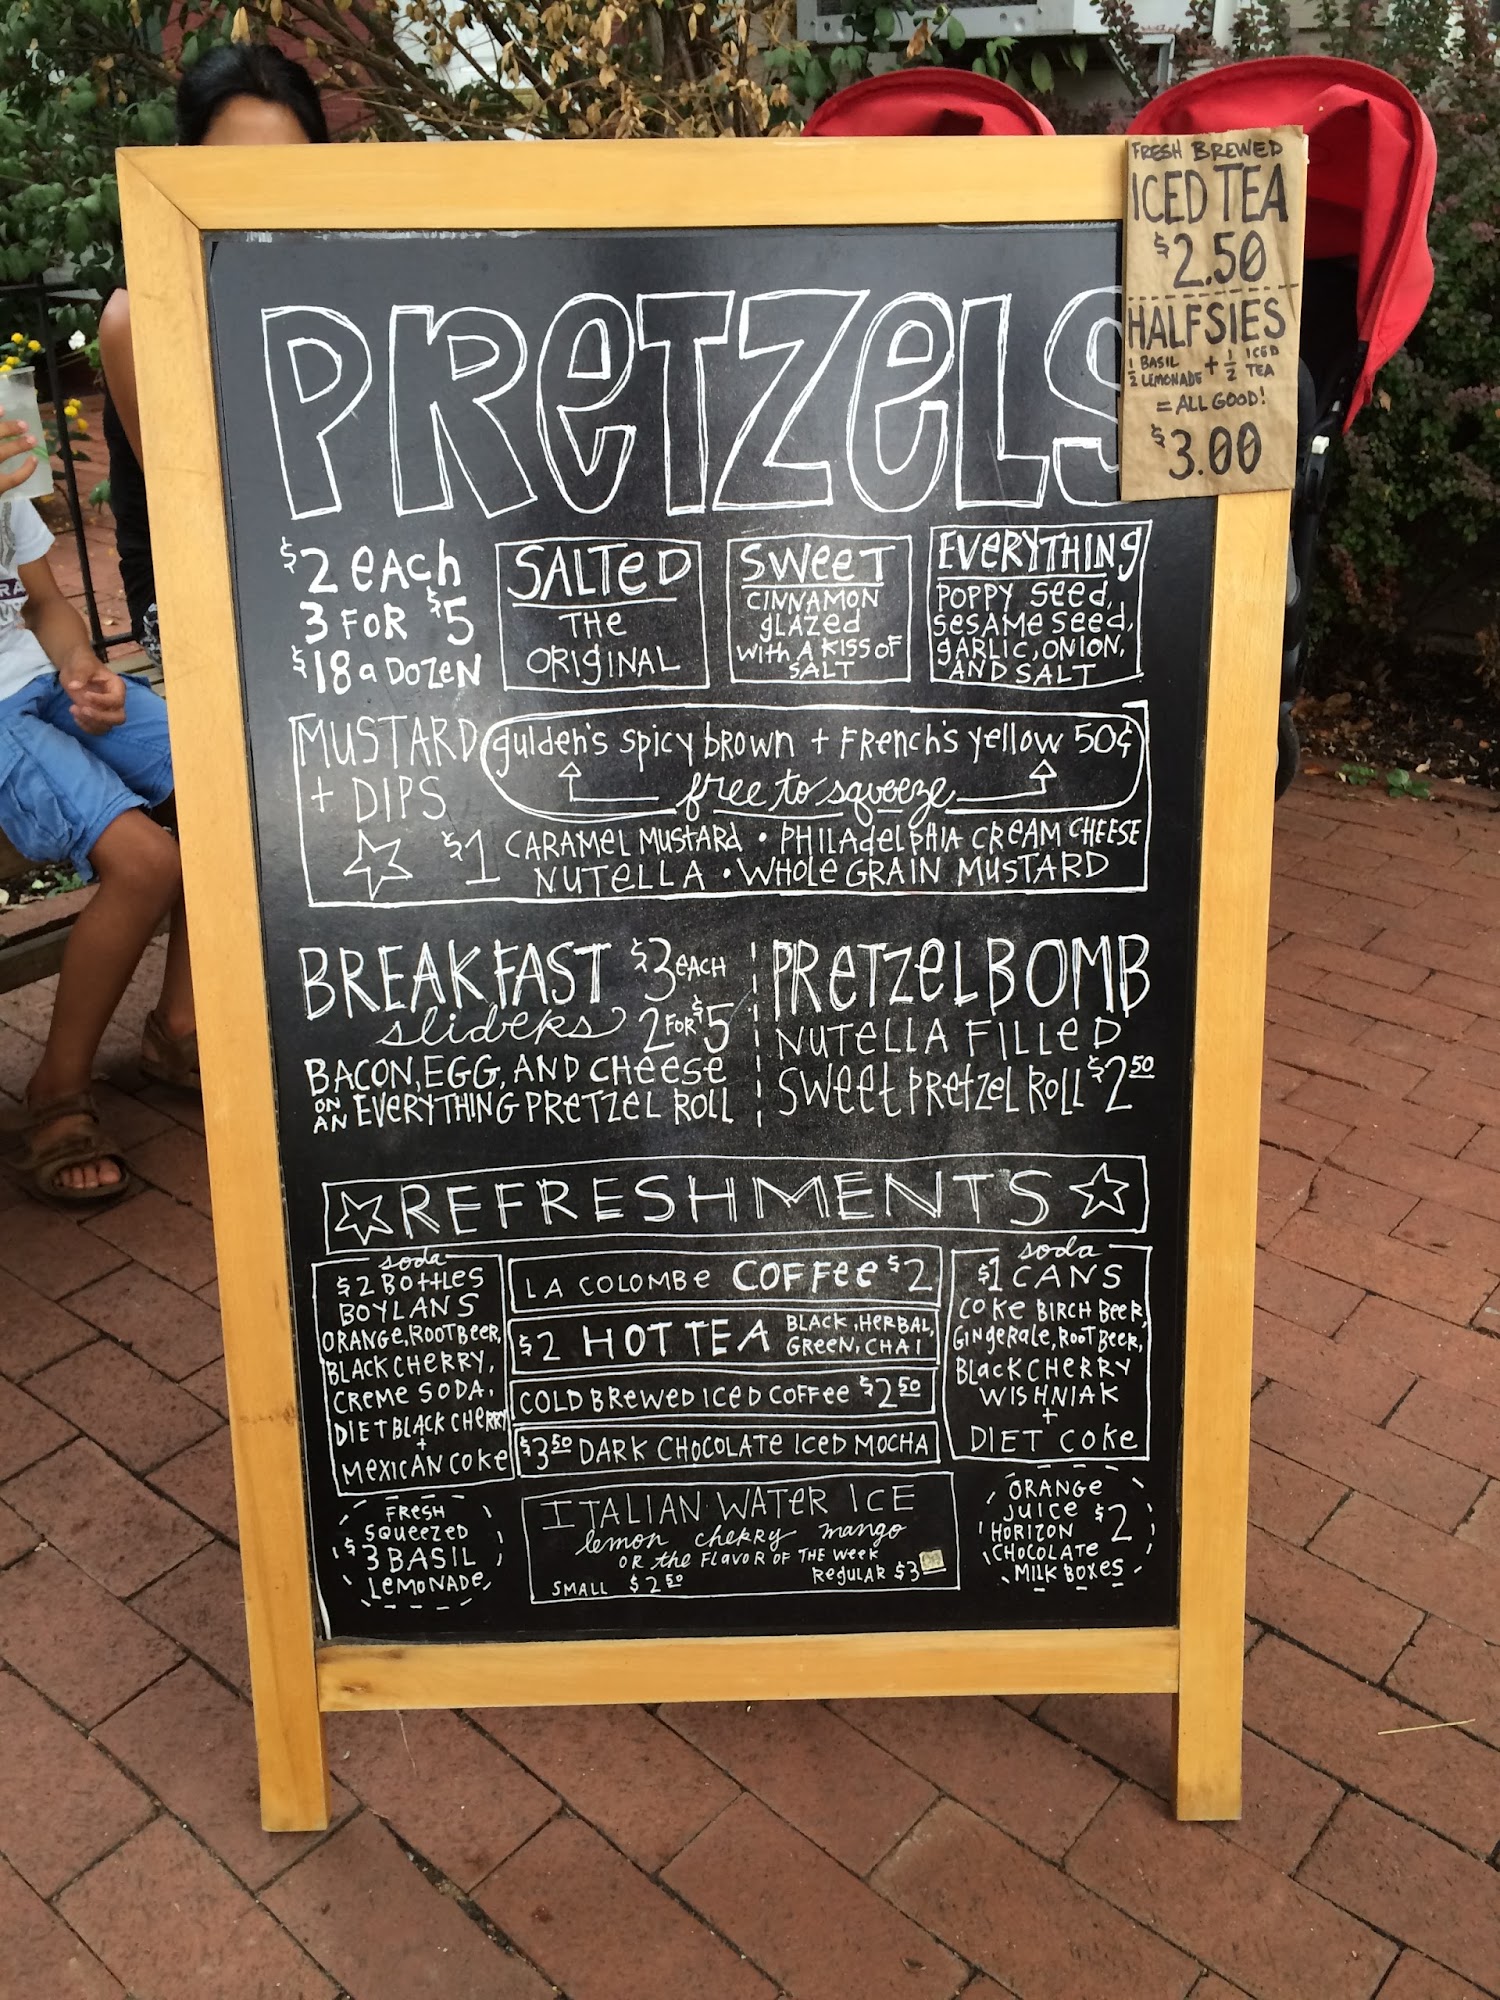 FRESH BREWED
ICED TEA
$2.50
HALFSIES
1/2 BASIL LEMONADE + 1/2 ICED TEA
= ALL GOOD!
$3.00
PRETZELS
$2 EACH
3 FOR $5
$18 a DOZEN
SALTED
THE
ORIGINAL
SWEET
CINNAMON
GLAZED
WITH A KISS OF
SALT
EVERYTHING
POPPY SEED,
SESAME SEED,
GARLIC, ONION,
AND SALT
MUSTARD
+ DIPS
gulden's spicy brown + French's yellow 50¢
free to squeeze
$1 CARAMEL MUSTARD • PHILADELPHIA CREAM CHEESE
NUTELLA • WHOLE GRAIN MUSTARD
BREAKFAST $3 EACH
sliders 2 FOR $5
BACON, EGG, AND CHEESE
ON AN EVERYTHING PRETZEL ROLL
PRETZEL BOMB
NUTELLA FILLED
SWEET PRETZEL ROLL $2.50
REFRESHMENTS
soda
$2 BOTTLES
BOYLANS
ORANGE, ROOT BEER,
BLACK CHERRY,
CREME SODA,
DIET BLACK CHERRY
+
MEXICAN COKE
LA COLOMBE COFFEE $2
$2 HOT TEA BLACK, HERBAL,
GREEN, CHAI
COLD BREWED ICED COFFEE $2 50
$3 50 DARK CHOCOLATE ICED MOCHA
soda
$1 CANS
COKE BIRCH BEER,
GINGERALE, ROOT BEER,
BLACK CHERRY
WISHNIAK
+
DIET COKE
FRESH
SQUEEZED
$3 BASIL
LEMONADE
ITALIAN WATER ICE
lemon cherry mango
OR the FLAVOR OF THE WEEK
SMALL $2 50 REGULAR $3
ORANGE
JUICE $2
HORIZON
CHOCOLATE
MILK BOXES